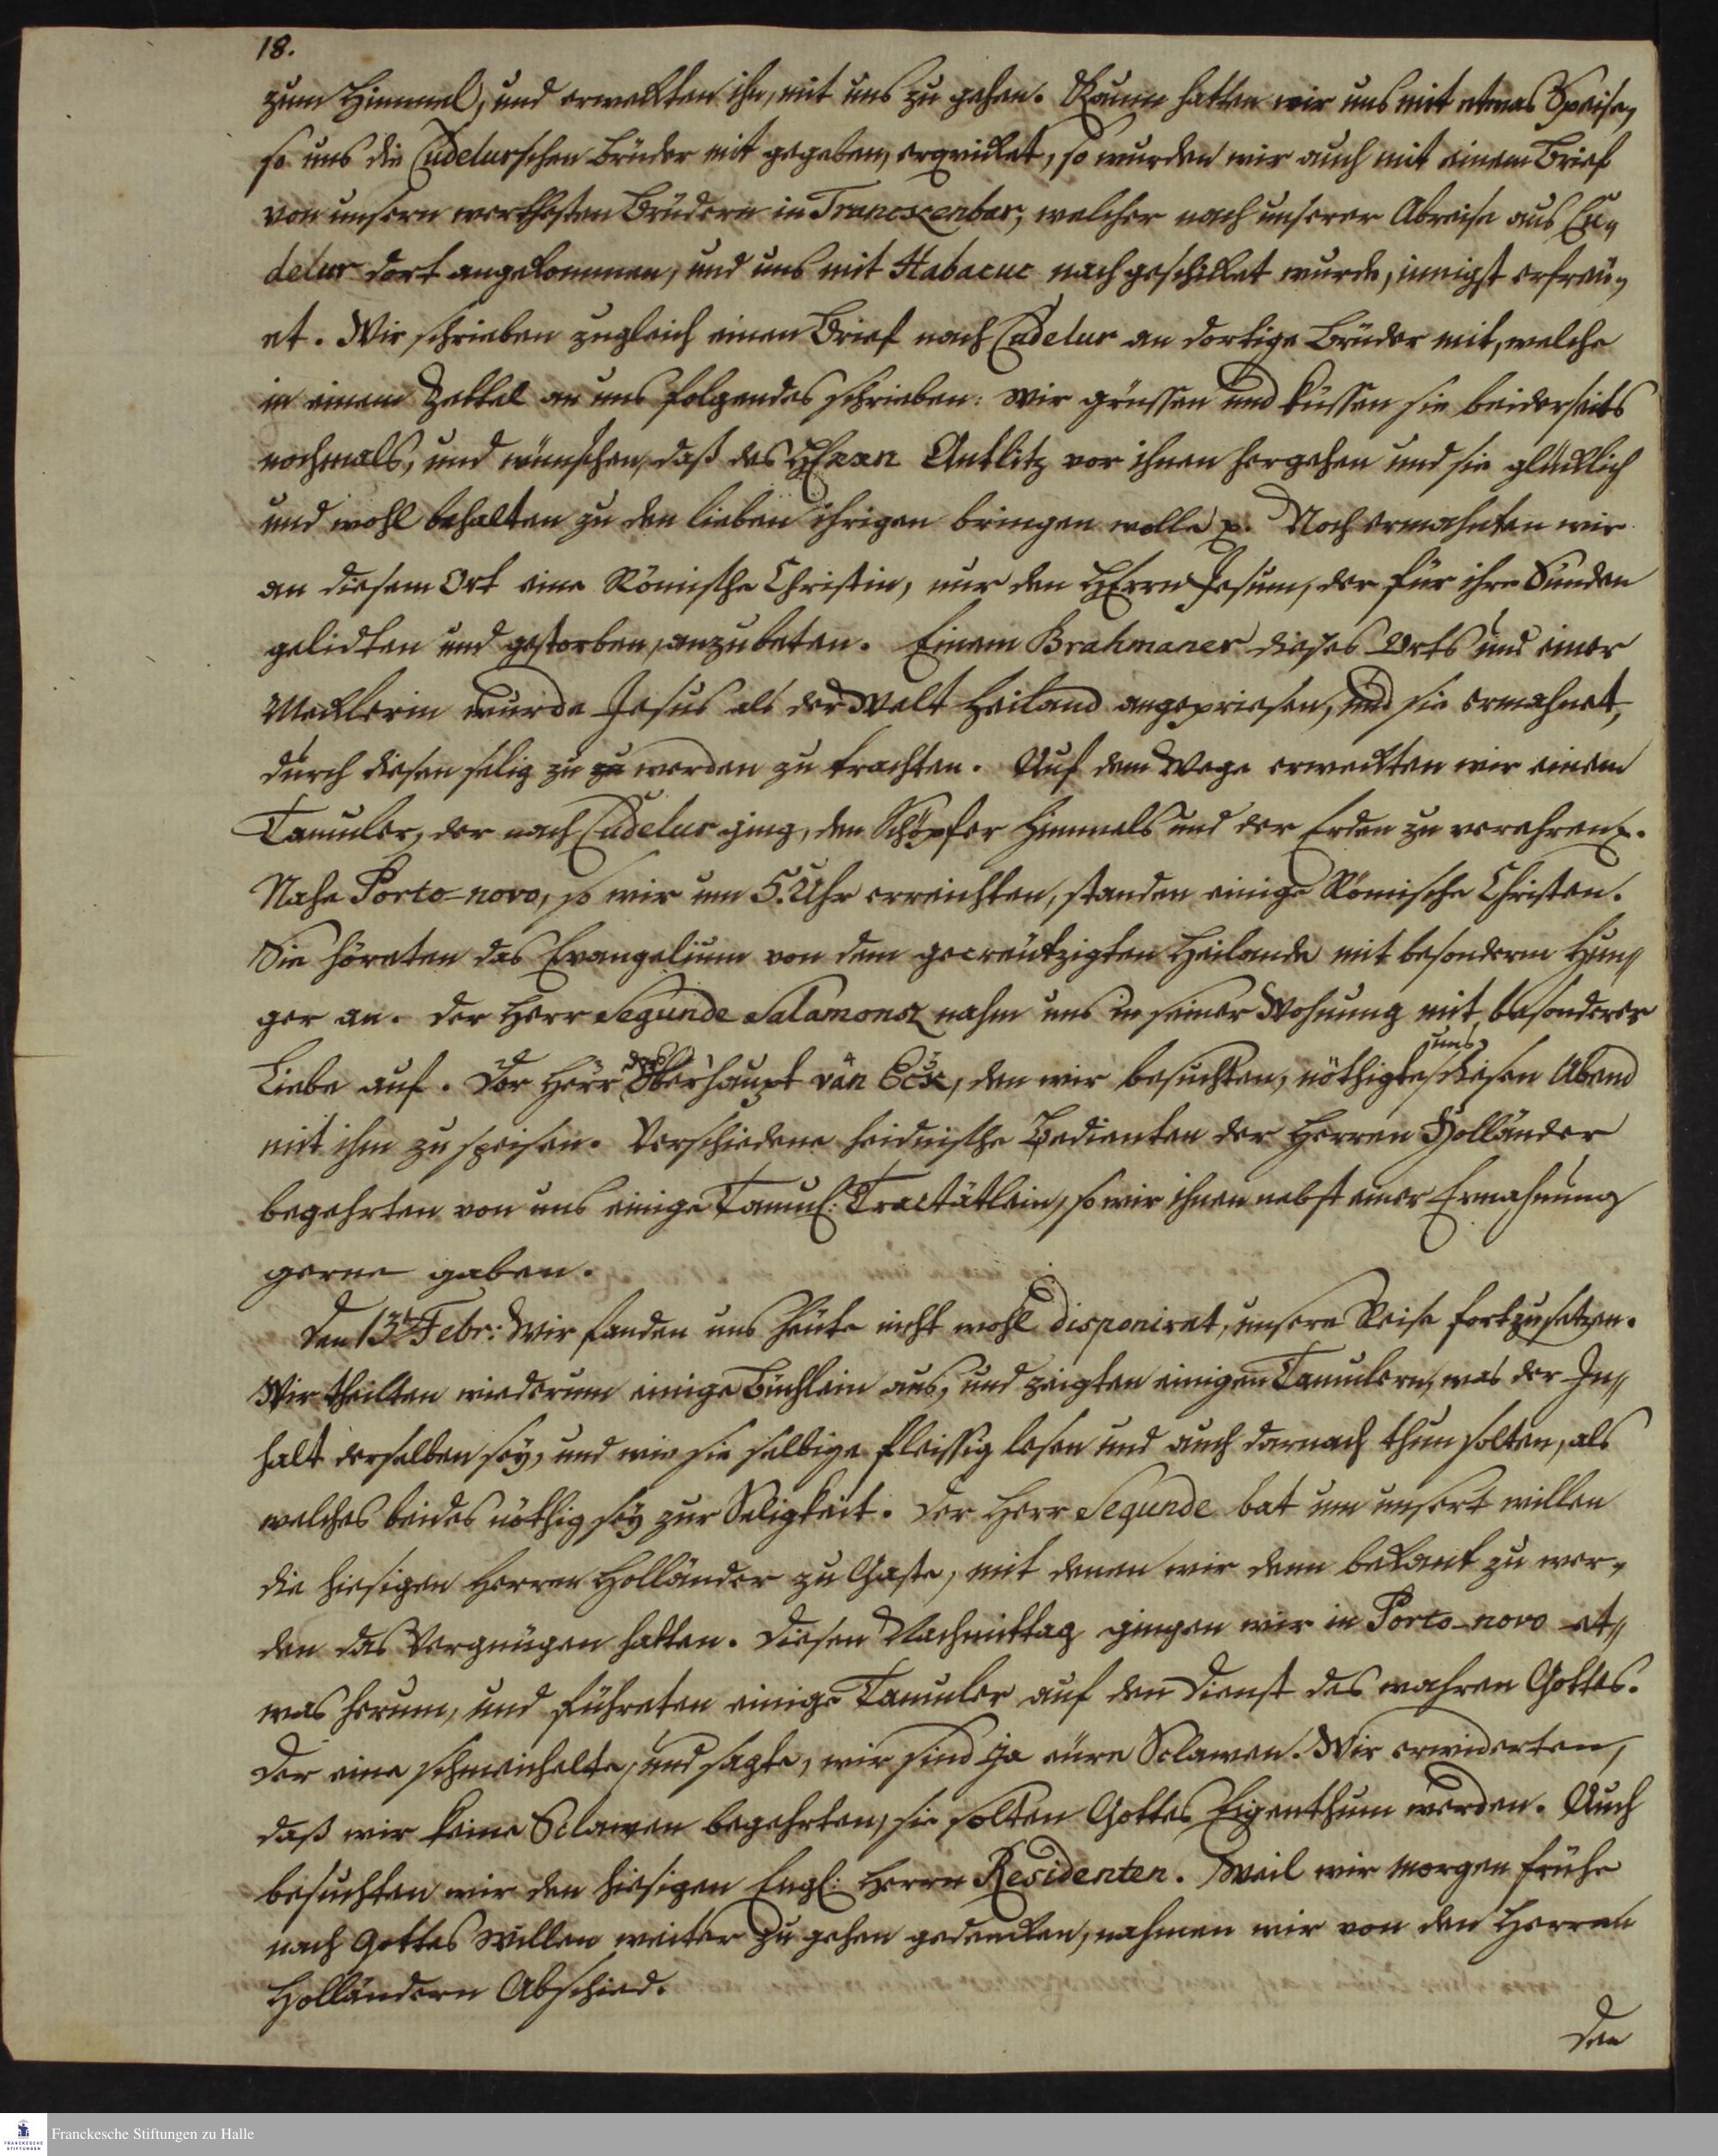 18.
zum Himmel, und erweckten ihn, mit uns zu gehen. Kaum hatten wir uns mit etwas Speise,
so uns die Cudelurschen Brüder mit gegeben, erquicket, so wurden wir auch mit einem Brief
von unsern werthesten Brüdern in Tranckenbar, welcher nach unserer Abreise aus Cu„
delur dort angekommen, und uns mit Habacuc nachgeschicket wurde, innigst erfreü„
et. Wir schrieben zugleich einen Brief nach Cudelur an dortige Brüder mit, welche
in einem Zettel an uns folgendes schrieben: wir grüssen und küssen sie beiderseits
nochmals, und wünschen, daß des HErrn Antlitz vor ihnen hergehen und sie glücklich
und wohl behalten zu den lieben ihrigen bringen wolle p. Noch ermahnten wir
an diesem Ort eine Römische Christin, nur den HErrn Jesum, der für ihre Sünden
gelidten und gestorben, anzubeten. Einem Brahmaner dieses Orts und einer
Mecklerin wurde Jesus als der Welt Heiland angepriesen, und sie ermahnet,
durch diesen selig zu zu werden zu trachten. Auf dem Wege erweckten wir einem
Tamuler, der nach Cudelur ging, den Schöpfer Himmels und der Erden zu verehren p.
Nahe Porto-novo, so wir um 5. Uhr erreichten, standen einige Römische Christen.
Sie höreten das Evangelium von dem gecreützigten Heilande mit besonderm Hun„
ger an. Der Herr Segunde Salamonsz nahm uns in seiner Wohnung mit besonderer
Liebe auf. Der Herr Oberhaupt van Eck, den wir besuchten, nöthigte uns diesen Abend
mit ihm zu speisen. Verschiedene heidnische Bedienten der Herren Holländer
begehrten von uns einige Tamul: Tractätlein, so wir ihnen nebst einer Ermahnung
gerne gaben.
Den 13t Febr: Wir fanden uns heute nicht wohl disponiret, unsere Reise fortzusetzen.
Wir theilten wiederum einige Büchlein aus, und zeigten einigen Tamulern, was der In„
halt derselben seÿ, und wie sie selbige fleissig lesen und auch darnach thun solten, als
welches beides nöthig seÿ zur Seligkeit. Der Herr Segunde bat um unsert willen
die hiesigen Herren Holländer zu Gaste, mit denen wir denn bekant zu wer„
den das Vergnügen hatten. Diesen Nachmittag gingen wir in Porto-novo et„
was herum, und führeten einige Tamuler auf den Dienst des wahren Gottes.
Der eine schmeichelte, und sagte, wir sind ja eüre Sclawen. Wir erwiderten,
daß wir keine Sclawen begehrten, sie solten Gottes Eigenthum werden. Auch
besuchten wir den hiesigen Engl: Herrn Residenten. Weil wir morgen frühe
nach Gottes Willen weiter zu gehen gedencken, nahmen wir von den Herren
Holländern Abschied.
Den
FRANCKESCHE STIFTUNGEN
Franckesche Stiftungen zu Halle